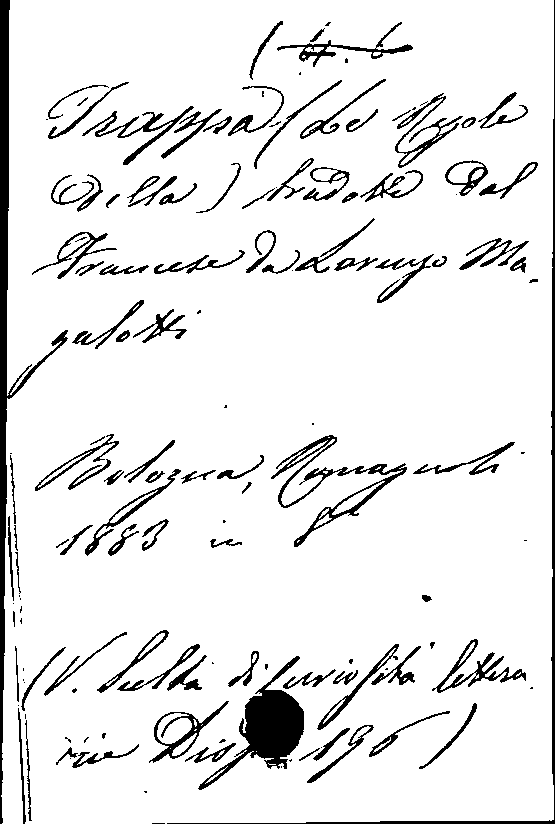 Trappa (Le Regole
della) tradotte dal
Francese da Lorenzo Ma-
galotti
Bologna, Romagnoli
1883 in 8º
(V. Scelta di curiosità lettera
rie Disp. 196)